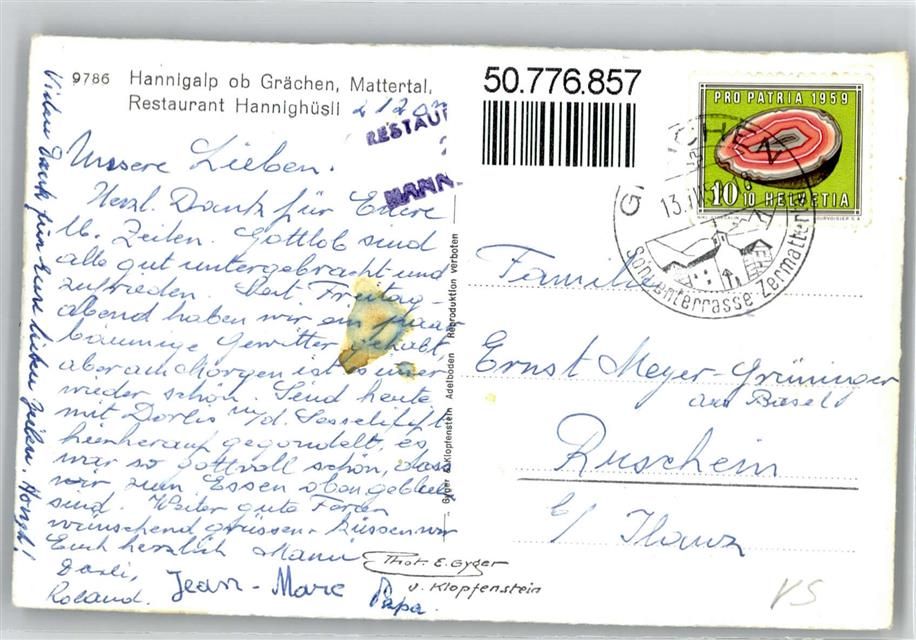 9786 Hannigalp ob Grächen, Mattertal,
Restaurant Hannighüsli
RESTAU
HANN
50.776.857
PRO PATRIA 1959
10 10 HELVETIA
GRÄCHEN
13.
Sonnenterrasse Zermattertal
Unsere Lieben.
Herzl. Dank für Eure
lb. Zeilen. Gottlob sind
alle gut untergebracht und
zufrieden. Seit Freitag-
abend haben wir ein paar
bäumige Gewitter gehabt,
aber am Morgen ist es immer
wieder schön. Sind heute
mit Dorlis m/d. Sesselilift
hierherauf gegondelt, es
war so gottvoll schön, dass
wir zum Essen oben geblieben
sind. Weiter gute Ferien
wünschend grüssen + küssen wir
Euch herzlich Mami
Dorli,
Roland. Jean-Marc Papa.
Vielen Dank für Eure lieben Zeilen.
Phot. E. Gyger
u. Klopfenstein
Gyger & Klopfenstein Adelboden Reproduktion verboten
Familie
Ernst Meyer-Grüninger
aus Basel
Ruschein
b/ Ilanz
VS